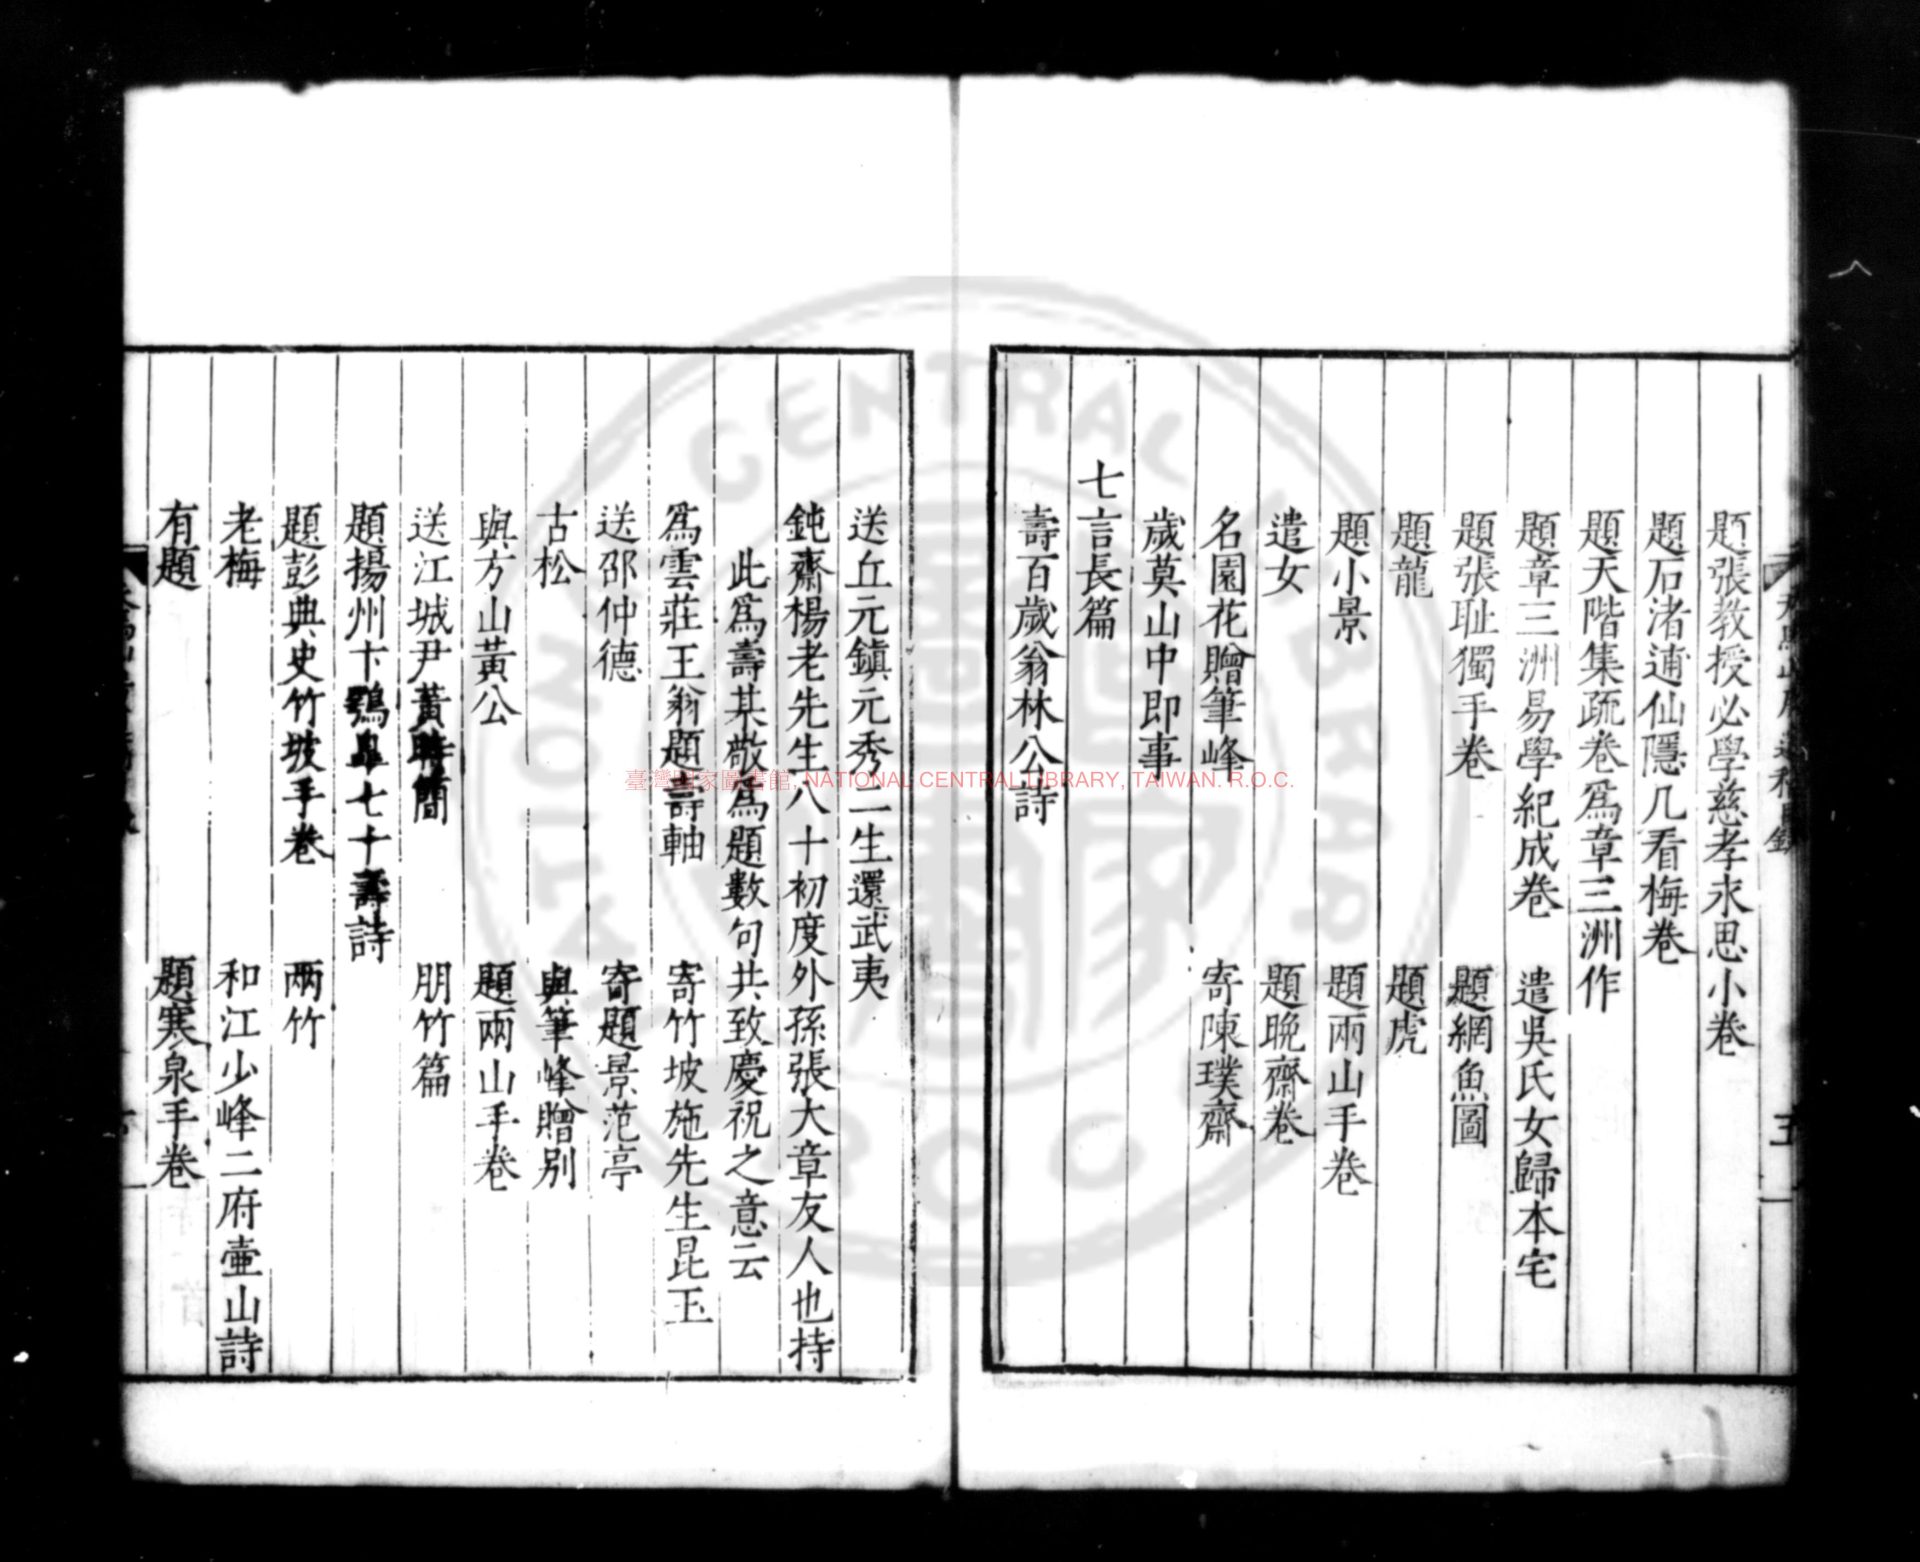 題張教授必學慈孝永思小卷
題石渚逋仙隱几看梅卷
題天階集疏卷爲章三洲作
題章三洲易學紀成卷　遣吳氏女歸本宅
題張耻獨手卷　題網魚圖
題龍　題虎
題小景　題兩山手卷
遣女　題晚齋卷
名園花贈筆峰　寄陳璞齋
歲莫山中即事
七言長篇
壽百歲翁林公詩
送丘元鎮元秀二生還武夷
鈍齋楊老先生八十初度外孫張大章友人也持
此爲壽某敬爲題數句共致慶祝之意云
爲雲莊王翁題壽軸　寄竹坡施先生昆玉
送邵仲德　寄題景范亭
古松　與筆峰贈别
與方山黃公　題兩山手卷
送江城尹黃時簡　朋竹篇
題揚州卞鶚七十壽詩
題彭典史竹坡手卷　兩竹
老梅　和江少峰二府壷山詩
有題　題寒泉手卷
臺灣國家圖書館, NATIONAL CENTRAL LIBRARY, TAIWAN. R.O.C.